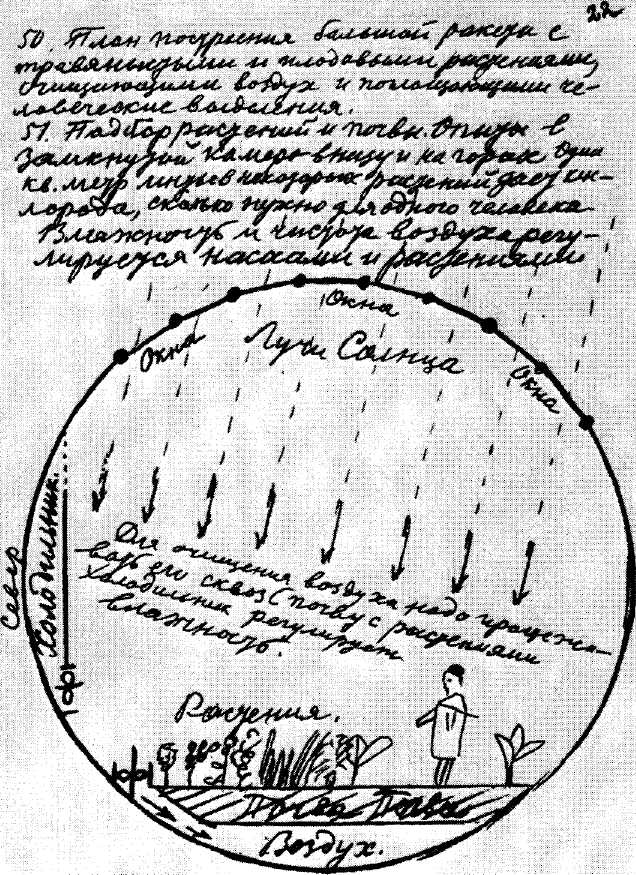 22
50. План построения большой ракеты с
травянистыми и плодовыми растениями,
очищающими воздух и поглощающими че-
ловеческие выделения.
51. Подбор растений и почвы. Опыты в
замкнутой камере внизу и на горах. Один
кв. метр листьев некоторых растений дает кис-
лорода, сколько нужно для одного человека
Влажность и чистота воздуха регу-
лируется насосами и растениями
Окна
Окна
Лучи Солнца
Окна
Север
Холодильник.
Для очищения воздуха надо прогонять
его сквозь почву с растениями
Холодильник регулирует
влажность.
Растения.
Почва Почва
Воздух.